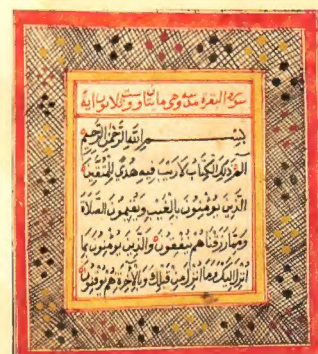 سورة البقرة مدنية وهي مايتان وست وثلاثون اية
بسم الله الرحمن الرحيم
الم ذلك الكتاب لا ريب فيه هدى للمتقين
الذين يومنون بالغيب ويقيمون الصلاة
ومما رزقناهم ينفقون والذين يومنون بما
انزل اليك وما انزل من قبلك وبالآخرة هم يوقنون